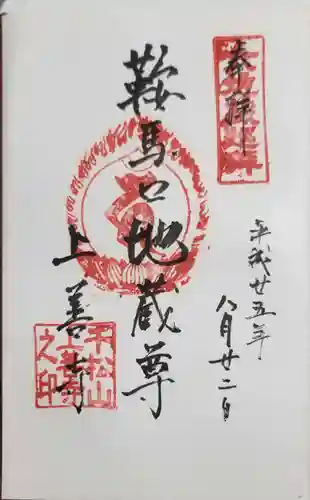 奉拝
平成廿五年
八月廿二日
鞍馬口地蔵尊
上善寺
千松山
上善寺
之印